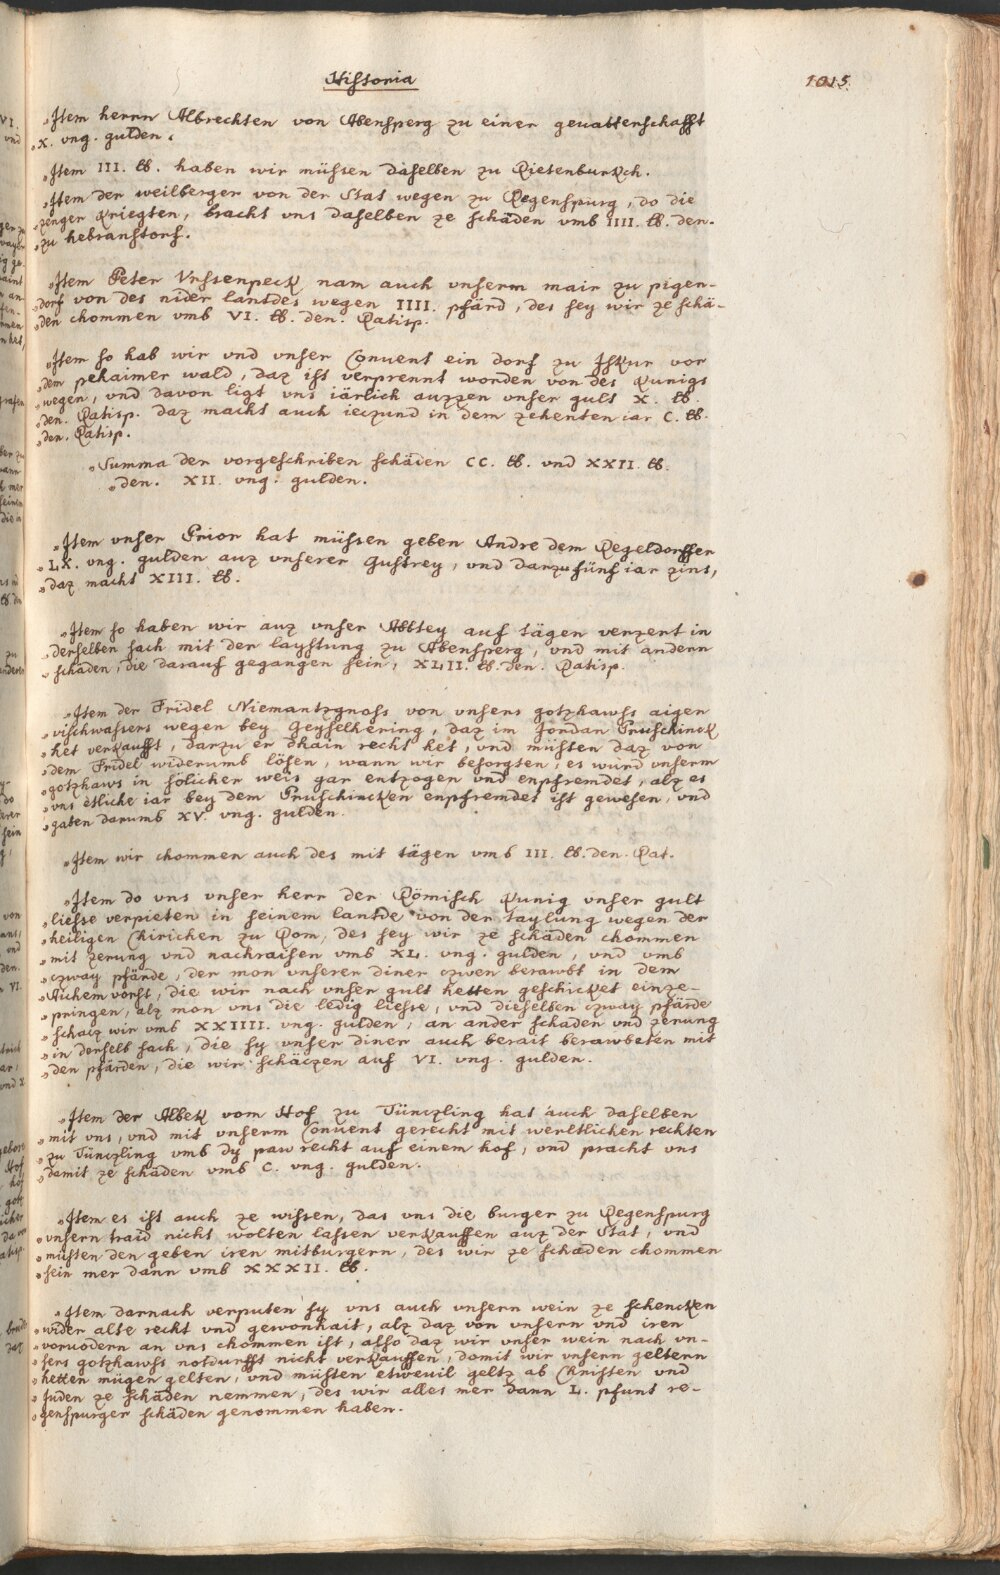 Historia
1015.
„Item herrn Albrechten von Abensperg zu einer geuatterschafft
„X. ung. gulden.
„Item III. lb. haben wir müssen daselben zu Rietenburkch.
„Item der weilberger von der Stat wegen zu Regenspurg, do die
„zenger kriegten, bracht uns daselben ze schäden umb IIII. lb. den.
„zu hebranstorf.
„Item Peter Vrssenpeck nam auch unserm mair zu pigen-
„dorf von des nider lantdes wegen IIII. pfärd, des sey wir ze schä-
„den chommen umb VI. lb. den. Ratisp.
„Item so hab wir und unser Convent ein dorf zu Iskur vor
„dem pehaimer wald, daz ist verprennt worden von des Kunigs
„wegen, und davon ligt uns iärlich auzzen unser gult X. lb.
„den. Ratisp. daz macht auch ieczund in dem zehenten iar C. lb.
„den. Ratisp.
„Summa der vorgeschriben schäden CC. lb. und XXII. lb.
„den. XII. ung. gulden.
„Item unser Prior hat müssen geben Andre dem Regeldorffer
„LX. ung. gulden auz unserer Gustrey, und darzu fünf iar zins,
„daz macht XIII. lb.
„Item so haben wir auz unser Abbtey auf tägen verzert in
„derselben sach mit der laystung zu Abensperg, und mit andern
„schäden, die darauf gegangen sein, XLII. lb. den. Ratisp.
„Item der Fridel Niemantzgnoss von unsers gotzhawss aigen
„vischwassers wegen bey Geyselhering, daz im Jordan Pruschinck
„het verkaufft, darzu er dhain recht het, und müsten daz von
„dem Fridel widerumb lösen, wann wir besorgten, es wurd unserm
„gotzhaws in sölicher weis gar entzogen und enpfremdet, alz es
„uns etliche iar bey dem Pruschincken enpfremdet ist gewesen, und
„gaben darumb XV. ung. gulden.
„Item wir chommen auch des mit tägen umb III. lb. den. Rat.
„Item do uns unser herr der Römisch Kunig unser gult
„liesse verpieten in seinem lantde von der taylung wegen der
„heiligen Chirichen zu Rom, des sey wir ze schäden chommen
„mit zerung und nachraisen umb XL. ung. gulden, und umb
„czway pfärde, der mon unserer diner czwen berawbt in dem
„Aichem vorst, die wir nach unser gult hetten geschicket einze-
„pringen, alz mon uns die ledig liesse, und dieselben czway pfärde
„schacz wir umb XXIIII. ung. gulden, an ander schäden und zerung
„in derselb sach, die sy unser diner auch berait berawbeten mit
„den pfärden, die wir schäczen auf VI. ung. gulden.
„Item der Albek vom Hof zu Tünczling hat auch daselben
„mit uns, und mit unserm Convent gerecht mit werltlichen rechten
„zu Tünczling umb dy paw recht auf einem hof, und pracht uns
„damit ze schäden umb C. ung. gulden.
„Item es ist auch ze wissen, das uns die burger zu Regenspurg
„unsern traid nicht wolten lassen verkauffen auz der Stat, und
„müsten den geben iren mitburgern, des wir ze schäden chommen
„sein mer dann umb XXXII. lb.
„Item darnach verputen sy uns auch unsern wein ze schencken
„wider alte recht und gewonhait, alz daz von unsern und iren
„vorvodern an uns chommen ist, also daz wir unser wein nach un-
„sers gotzhawss notdurfft nicht verkauffen, domit wir unsern geltern
„hetten mügen gelten, und müsten etweuil geltz ab Christen und
„Juden ze schäden nemmen, des wir alles mer dann L. pfunt re-
„genspurger schäden genommen haben.